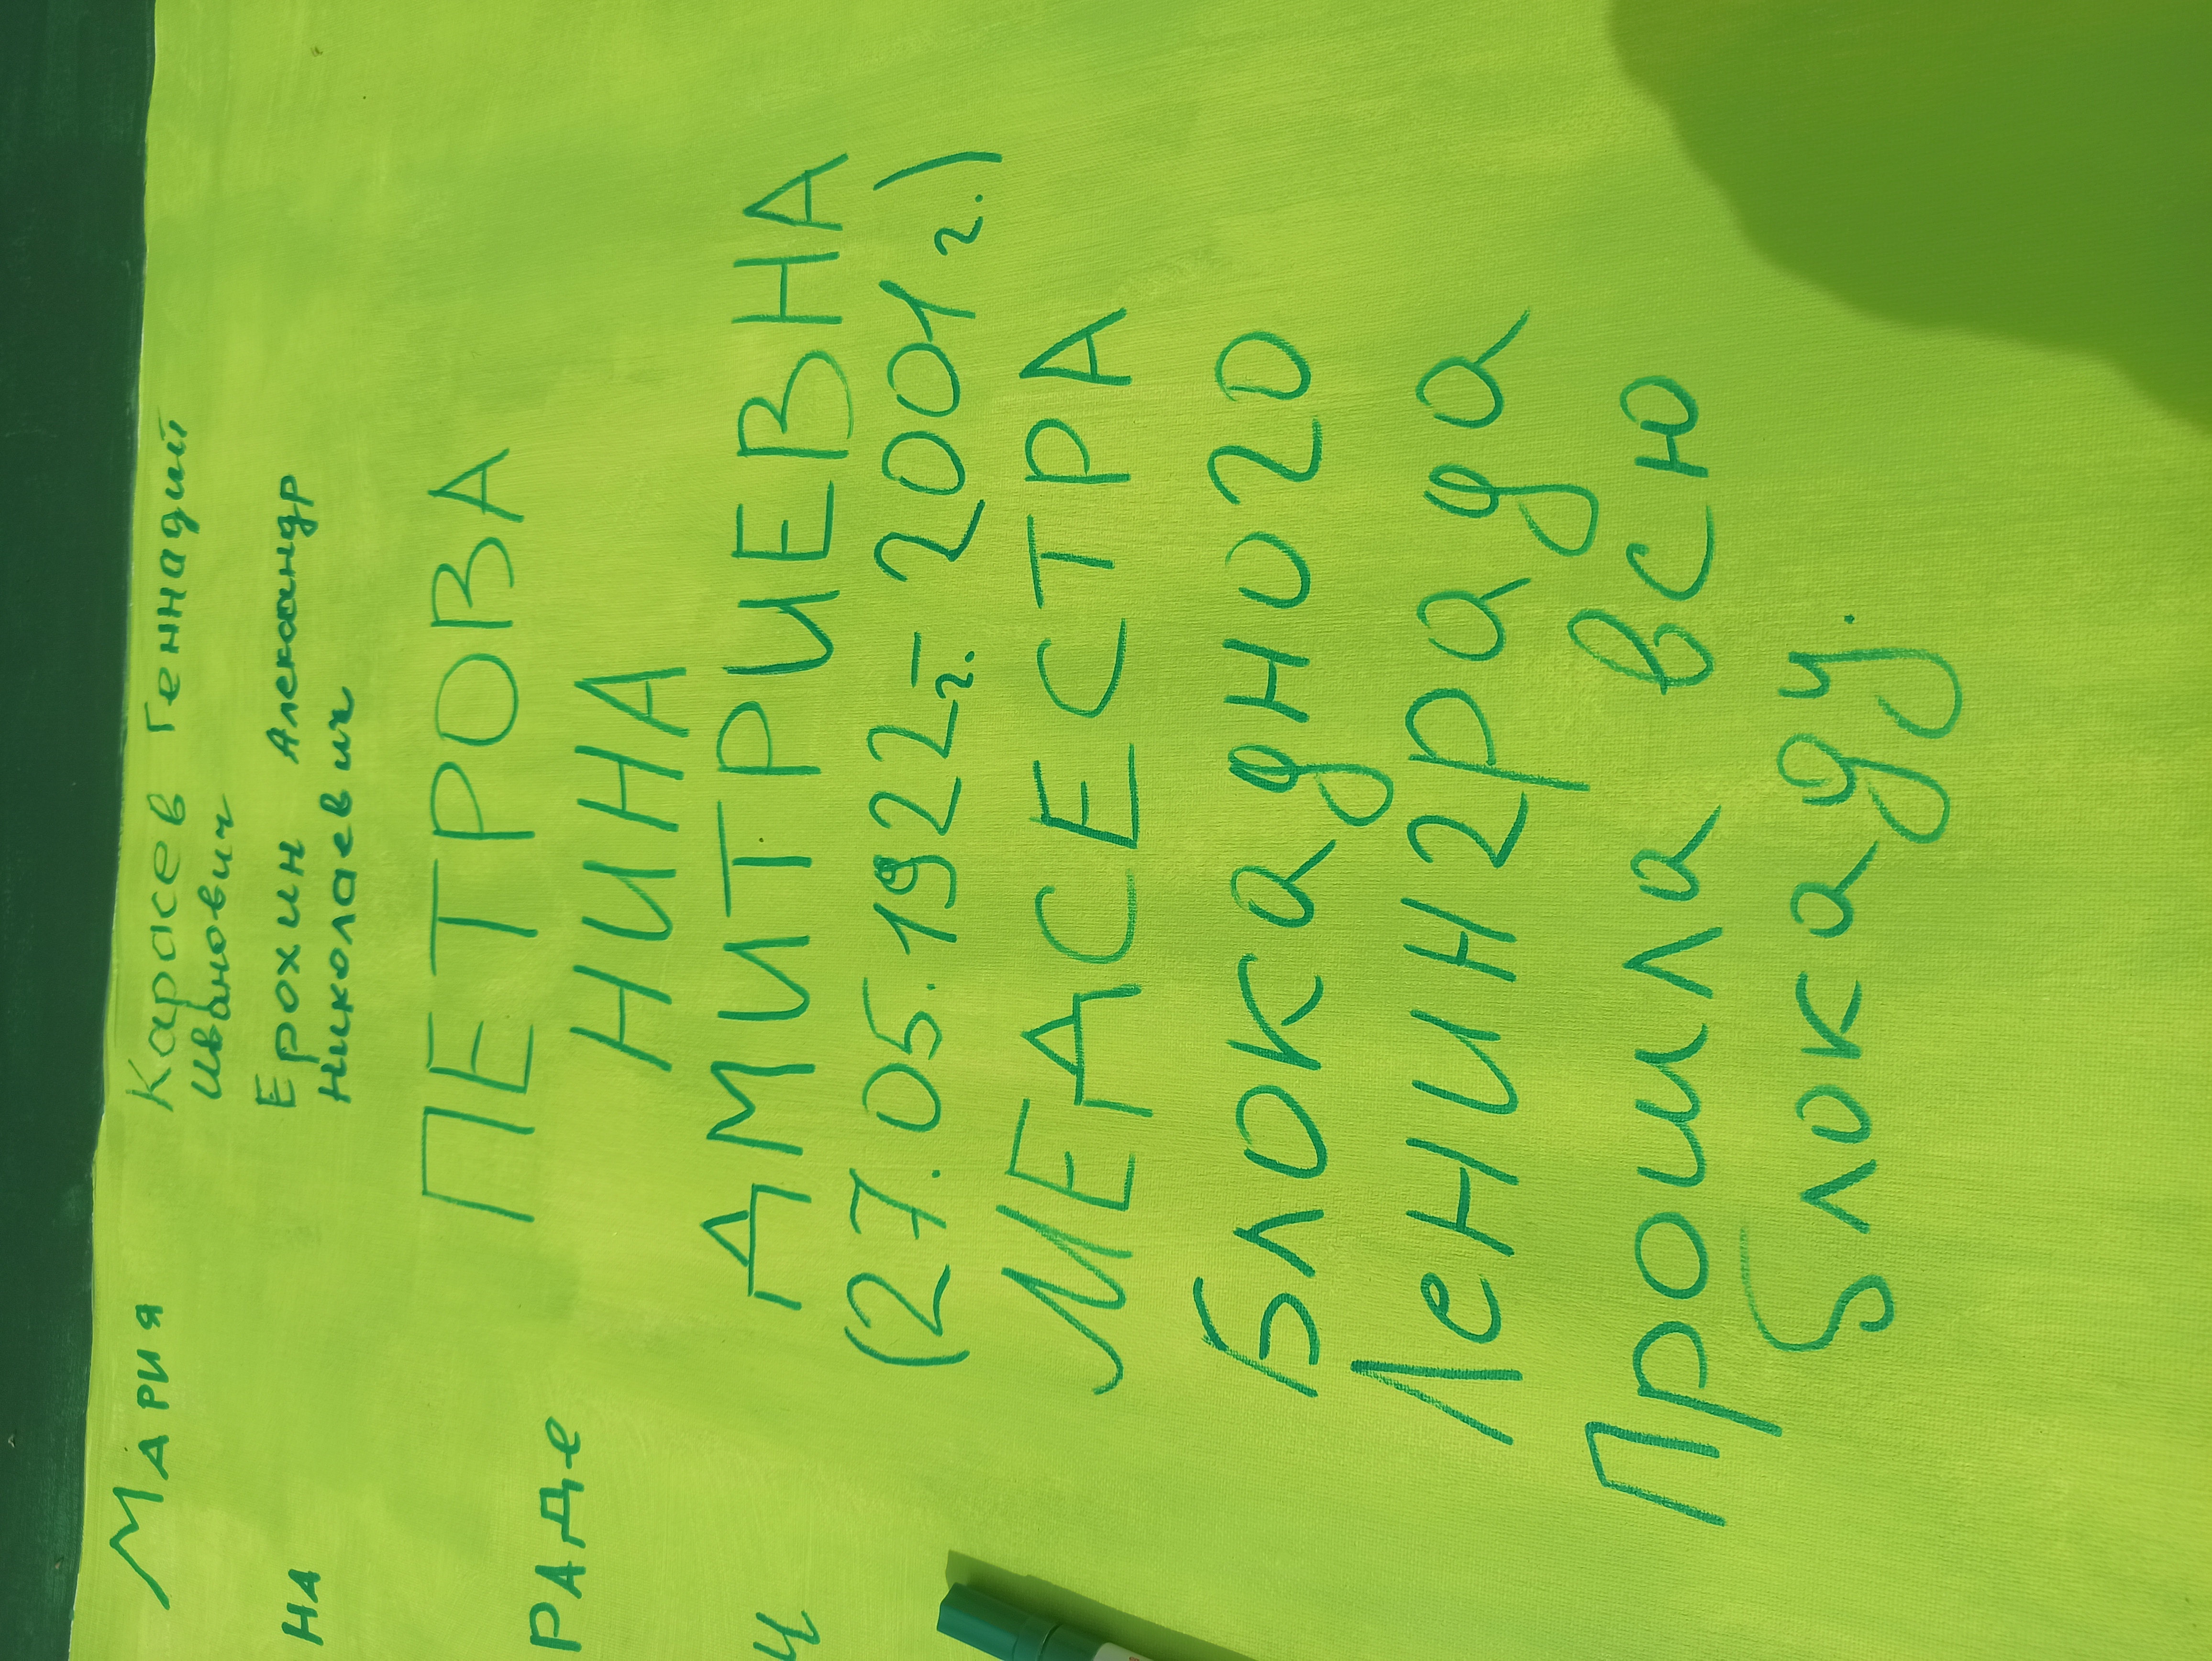 Мария
на
раде
Карасев Геннадий
Иванович
Ерохин Александр
Николаевич
ПЕТРОВА
НИНА
ДМИТРИЕВНА
(27.05.1922г. - 2001 г.)
МЕДСЕСТРА
Блокадного
Ленинграда
Прошла всю
блокаду.